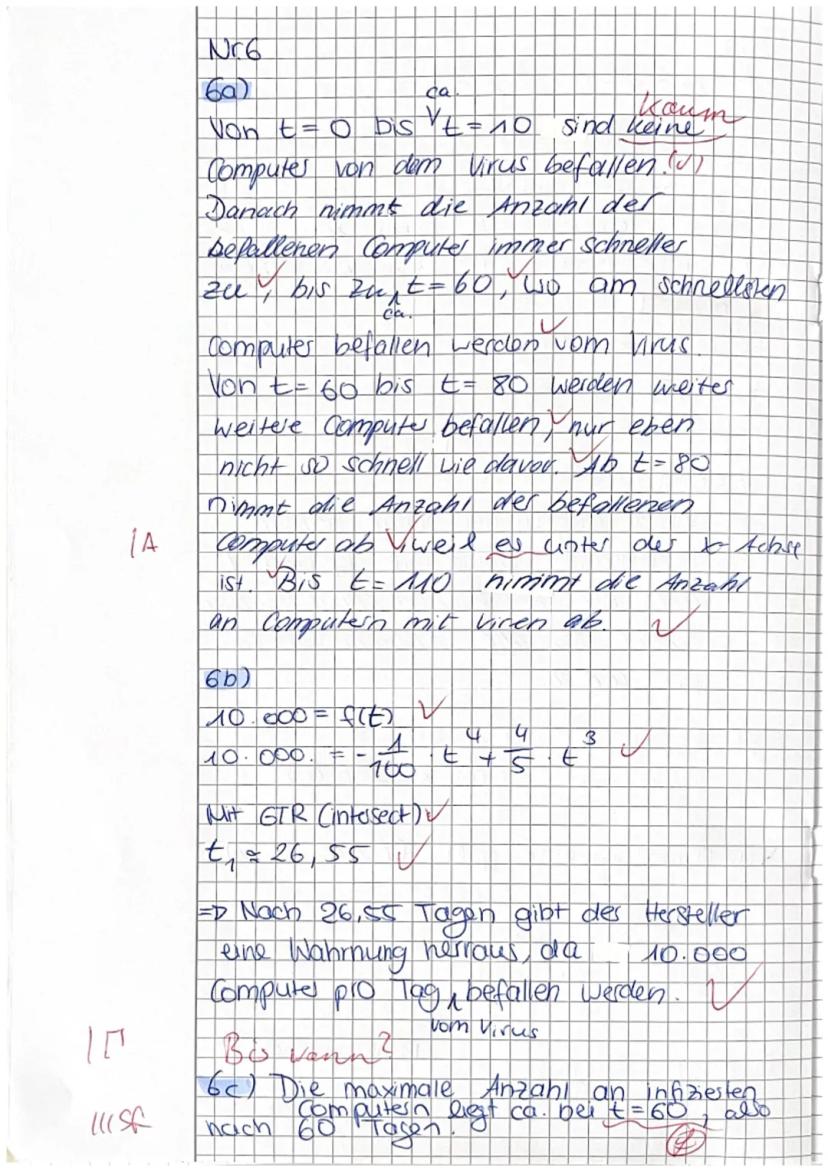 Nr.6
6a)
ca.
kaum
Von t = 0 bis t = 10 sind keine
Computer von dem Virus befallen. (✓)
Danach nimmt die Anzahl der
befallenen Computer immer schneller
zu ✓, bis zu t = 60, ✓ wo am schnellsten
ca.
Computer befallen werden ✓ vom Virus.
Von t = 60 bis t = 80 werden weiter
weitere Computer befallen, ✓ nur eben
nicht so schnell wie davor. ✓ Ab t = 80
nimmt die Anzahl der befallenen
1A Computer ab ✓, weil es unter der x-Achse
ist. ✓ Bis t = 110 nimmt die Anzahl
an Computern mit Viren ab. ✓
6b)
10.000 = f(t) ✓
10.000. = - 1/100 · t^4 + 4/5 · t^3 ✓
Mit GTR (intersect) ✓
t₁ ≈ 26,55 ✓
=> Nach 26,55 Tagen gibt der Hersteller
eine Wahrnung herraus, da 10.000
Computer pro Tag befallen werden. ✓
vom Virus
Bis wann?
6c) Die maximale Anzahl an infizierten
Computern liegt ca. bei t = 60, also
nach 60 Tagen.